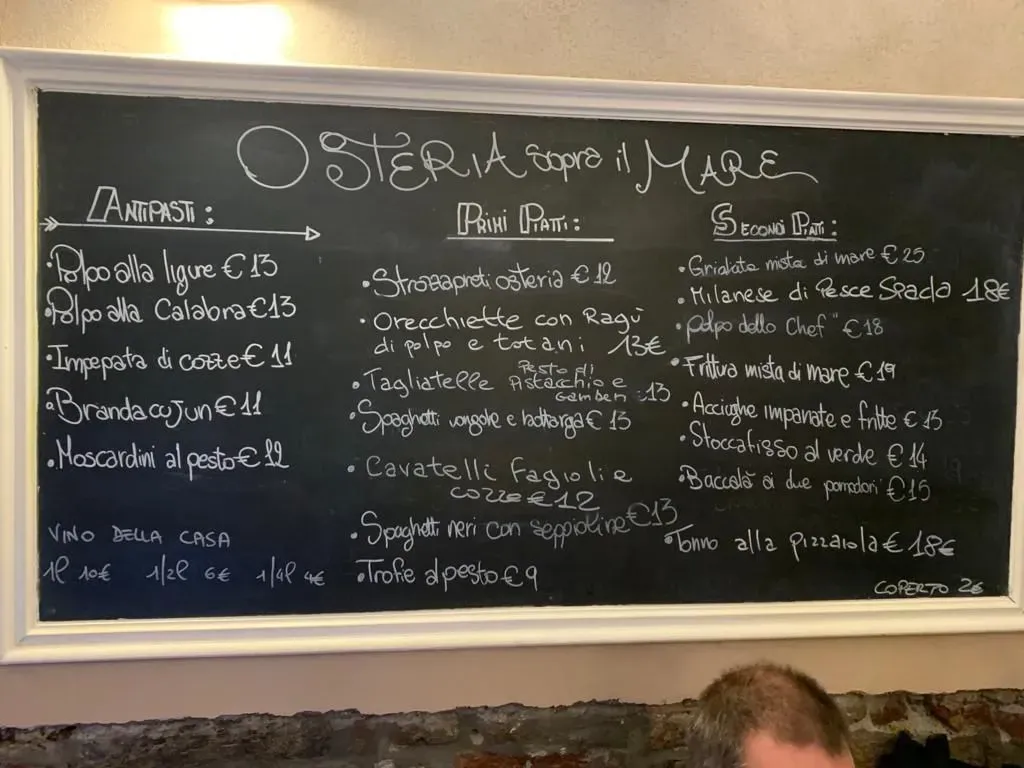 OSTERIA sopra il MARE
ANTIPASTI:
• Polpo alla ligure €13
• Polpo alla Calabra €13
• Impepata di cozze €11
• Brandacujun €11
• Moscardini al pesto €12
VINO DELLA CASA
1l 10€ 1/2l 6€ 1/4l 4€
PRIMI PIATTI:
• Strozzapreti osteria €12
• Orecchiette con Ragù
di polpo e totani 13€
• Tagliatelle Pesto di
Pistacchio e
Gamberi 13
• Spaghetti vongole e bottarga €13
• Cavatelli Fagioli e
cozze €12
• Spaghetti neri con seppioline €13
• Trofie al pesto €9
SECONDI PIATTI:
• Grigliata mista di mare €25
• Milanese di Pesce Spada 18€
• polpo dello Chef" €18
• Frittura mista di mare €19
• Acciughe impanate e fritte €15
• Stoccafisso al verde €14
• Baccalà ai due pomodori €15
• Tonno alla pizzaiola € 18€
COPERTO 2€